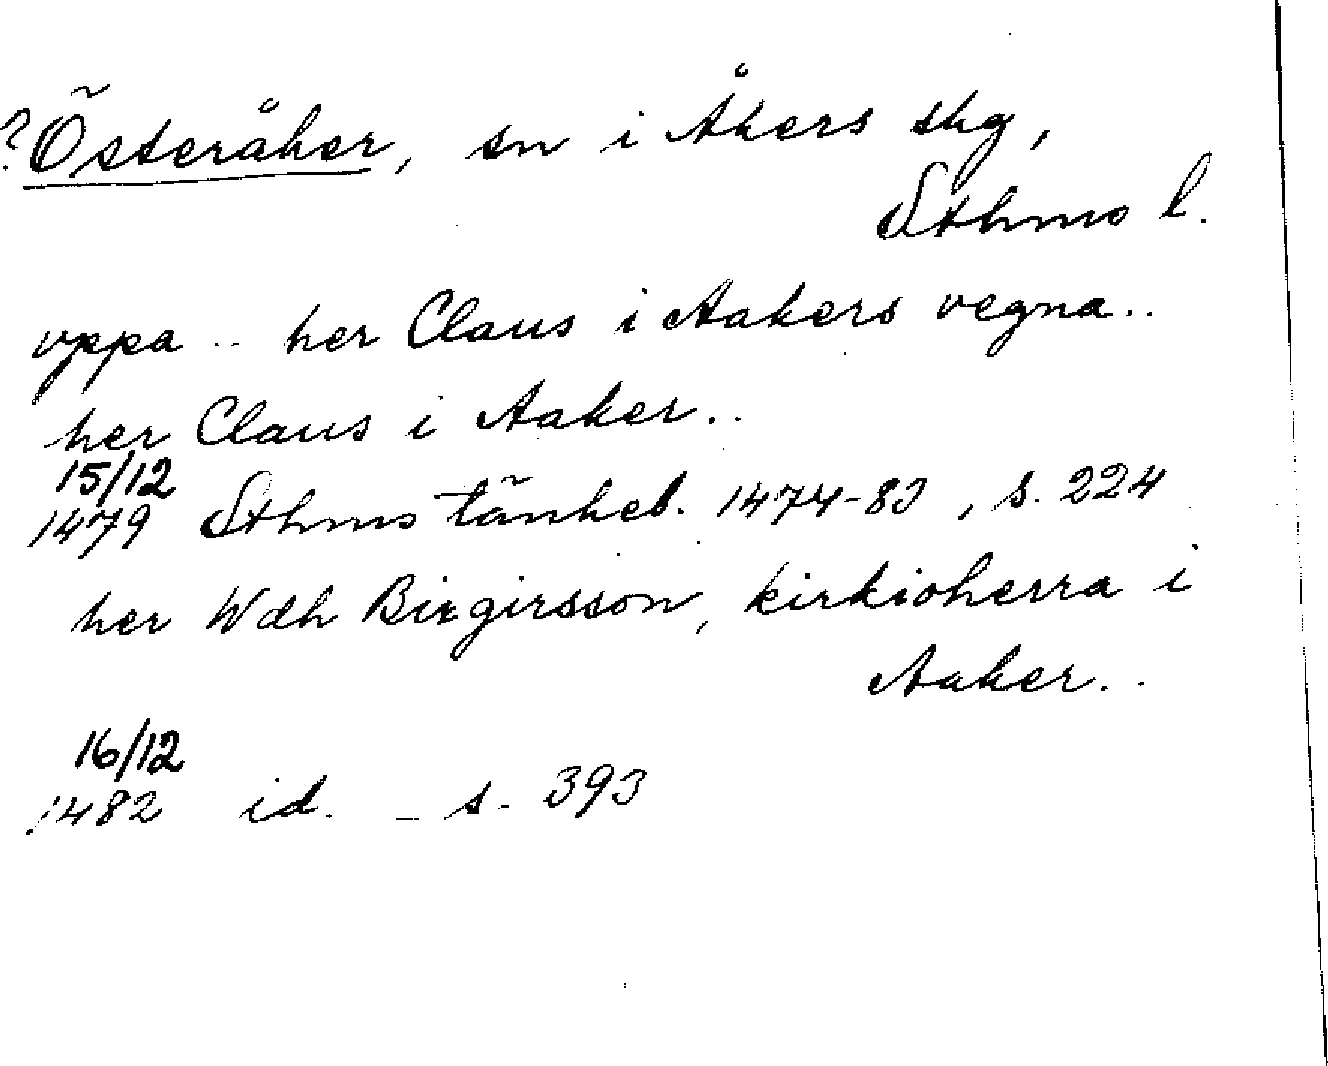 ? Österåker, sn i Åkers skg,
Sthms l.
vppa .. her Claus i Aakers vegna..
her Claus i Aaker..
15/12
1479 Sthms tänkeb. 1474-83, s. 224
her Wdh Birgirsson, kirkioherra i
Aaker..
16/12
1482 id. - s. 393